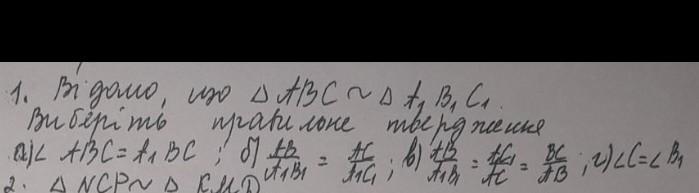 1. Відомо, що △ ABC ~ △ A₁ B₁ C₁.
Виберіть правильне твердження
а) ∠ ABC = A₁ BC ; б) AB/A₁B₁ = AC/A₁C₁ ; в) AB/A₁B₁ = A₁C₁/AC = BC/AB ; г) ∠C = ∠B₁
2. △ NCP ~ △ KMD